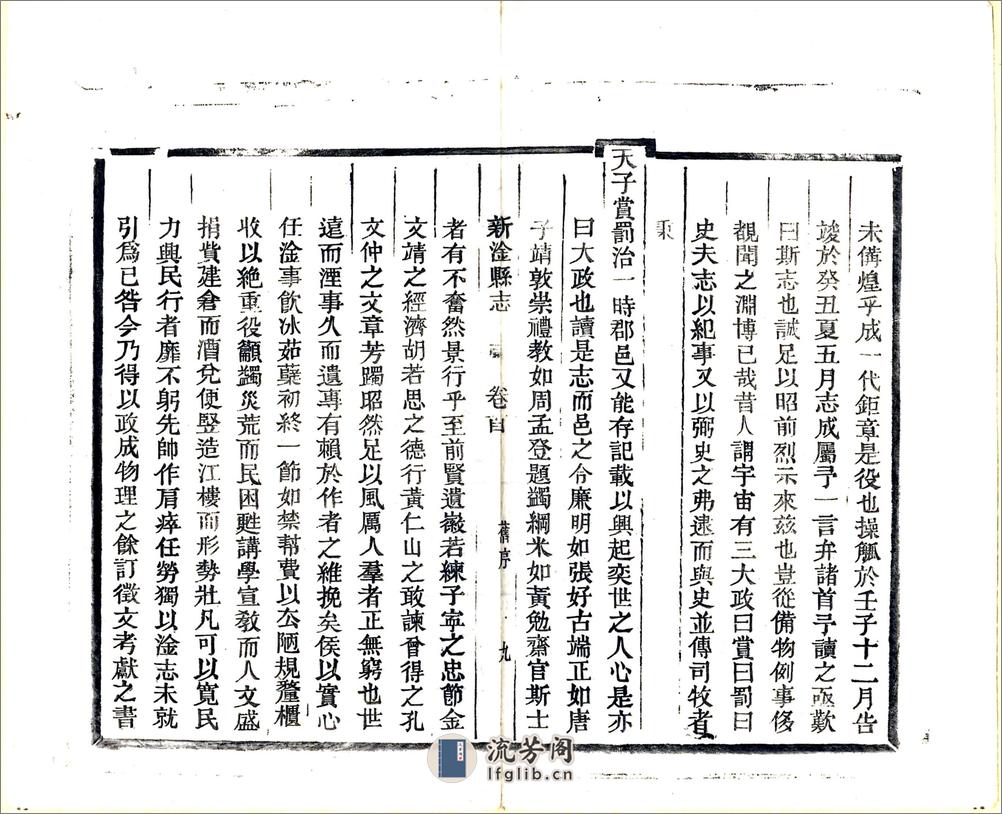 未備煌乎成一代鉅章是役也操觚於壬子十二月告
竣於癸丑夏五月志成屬予一言弁諸首予讀之亟歎
曰斯志也誠足以昭前烈示來茲也豈從備物例事侈
覩聞之淵博已哉昔人謂宇宙有三大政曰賞曰罰曰
史夫志以紀事又以弼史之弗逮而與史並傳司牧者
秉
天子賞罰治一時郡邑又能存記載以興起奕世之人心是亦
曰大政也讀是志而邑之令廉明如張好古端正如唐
子靖敦崇禮教如周孟登題蠲綱米如黃勉齋官斯士
新淦縣志 卷首 舊序 九
者有不奮然景行乎至前賢遺徽若練子寧之忠節金
文靖之經濟胡若思之德行黃仁山之敢諫曾得之孔
文仲之文章芳躅昭然足以風厲人羣者正無窮也世
遠而湮事久而遺專有賴於作者之維挽矣侯以實心
任淦事飲冰茹蘗初終一節如禁幫費以厺陋規釐櫃
收以絶重役籲蠲災荒而民困甦講學宣敎而人文盛
捐費建倉而酒兌便豎造江樓而形勢壯凡可以寬民
力興民行者靡不躬先帥作肩瘁任勞獨以淦志未就
引爲已咎今乃得以政成物理之餘訂徵文考獻之書
流芳阁
lfglib.cn